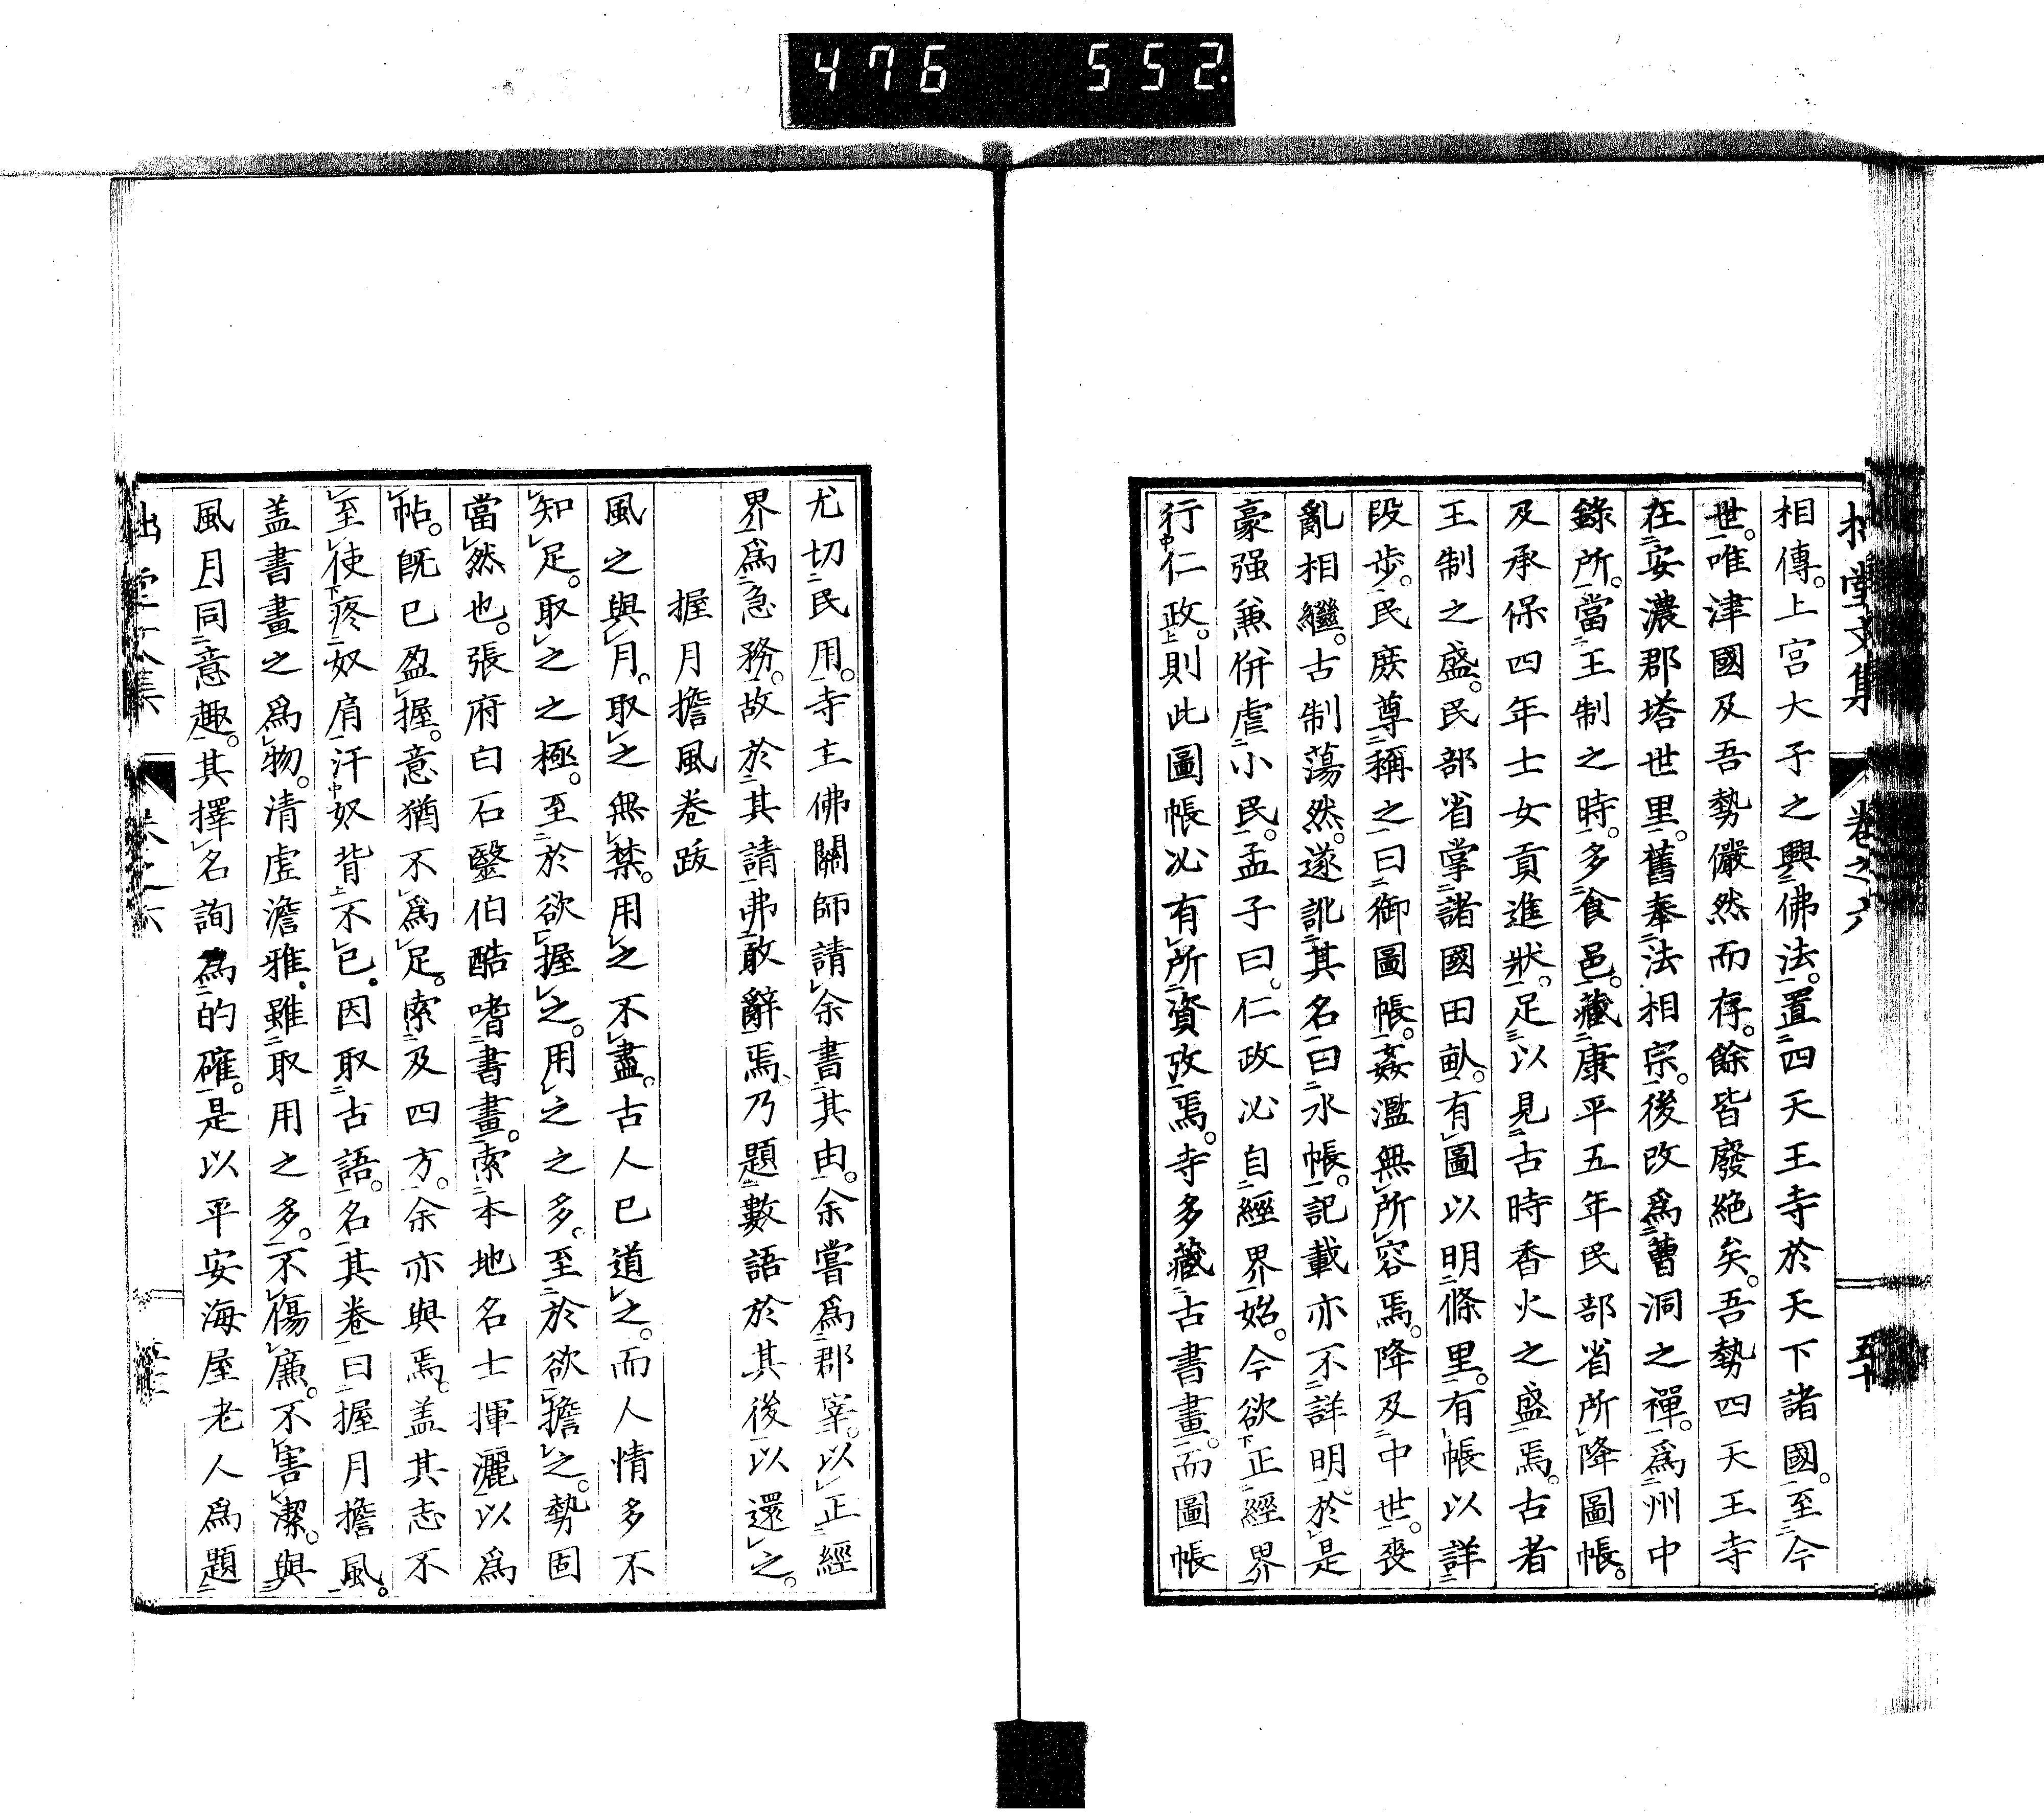 476 552
堂文集 卷之六 五十
相傳。上宮大子之興佛法。置四天王寺於天下諸國。至今
世。唯津國及吾勢儼然而存。餘皆廢絶矣。吾勢四天王寺
在安濃郡塔世里。舊奉法相宗。後改爲曹洞之禪。爲州中
錄所。當王制之時。多食邑。藏康平五年民部省所降圖帳。
及承保四年士女貢進狀。足以見古時香火之盛焉。古者
王制之盛。民部省掌諸國田畝。有圖以明條里。有帳以詳
段步。民庶尊稱之曰御圖帳。姦濫無所容焉。降及中世。喪
亂相繼。古制蕩然。遂訛其名曰水帳。記載亦不詳明。於是
豪强兼併虐小民。孟子曰。仁政必自經界始。今欲正經界
行仁政。則此圖帳必有所資攷焉。寺多藏古書畫。而圖帳
尤切民用。寺主佛關師請余書其由。余嘗爲郡宰。以正經
界爲急務。故於其請弗敢辭焉、乃題數語於其後以還之。
握月擔風卷跋
風之與月。取之無禁。用之不盡。古人已道之。而人情多不
知足。取之之極。至於欲握之。用之之多。至於欲擔之。勢固
當然也。張府白石鑒伯酷嗜書畫。索本地名士揮灑以爲
帖。既已盈握。意猶不爲足。索及四方。余亦與焉。盖其志不
至使疼奴肩汗奴背不已。因取古語。名其卷曰握月擔風。
盖書畫之爲物。清虛澹雅。雖取用之多。不傷廉。不害潔。與
風月同意趣。其擇名詢爲的確。是以平安海屋老人爲題
堂文集 卷之六